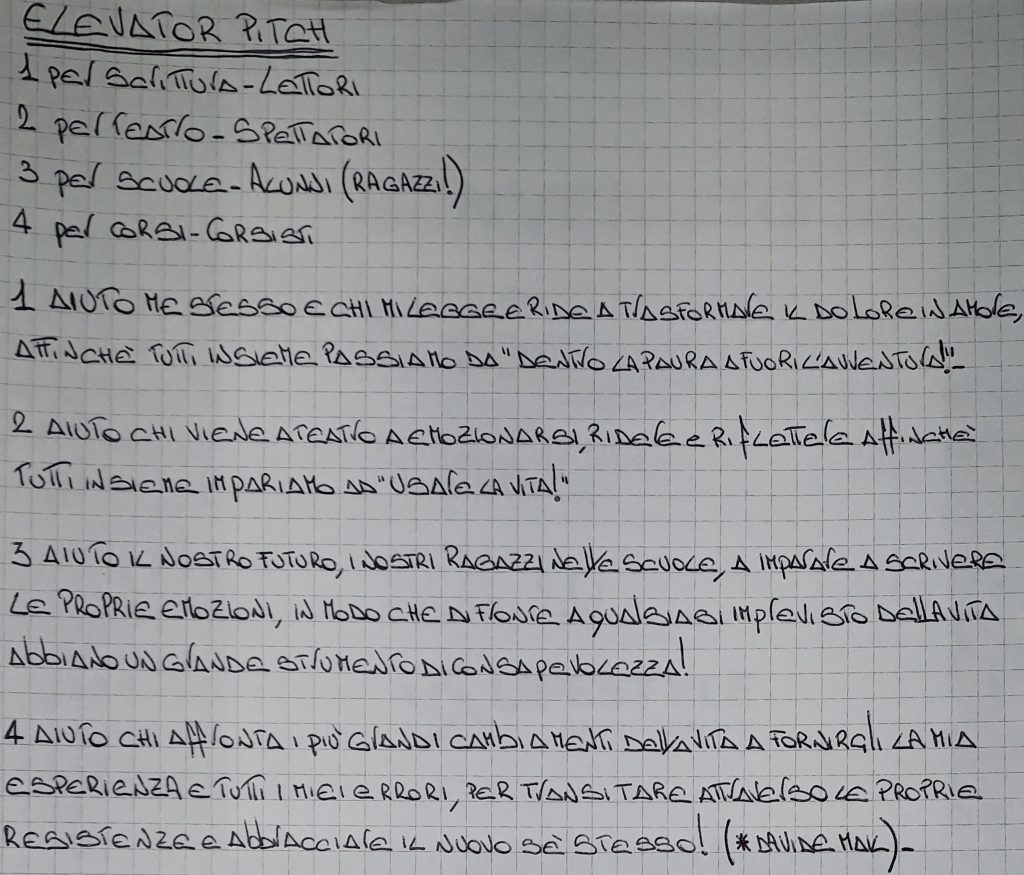 ELEVATOR PITCH
1 per SCRITTURA-LETTORI
2 per TEATRO-SPETTATORI
3 per SCUOLE-ALUNNI (RAGAZZI!)
4 per CORSI-CORSISTI
1 AIUTO ME STESSO E CHI MI LEGGE E RIDE A TRASFORMARE IL DOLORE IN AMORE,
AFFINCHÈ TUTTI INSIEME PASSIAMO DA "DENTRO LA PAURA A FUORI L'AVVENTURA!"-
2 AIUTO CHI VIENE A TEATRO A EMOZIONARSI, RIDERE E RIFLETTERE AFFINCHÈ
TUTTI INSIEME IMPARIAMO AD "USARE LA VITA!"
3 AIUTO IL NOSTRO FUTURO, I NOSTRI RAGAZZI NELLE SCUOLE, A IMPARARE A SCRIVERE
LE PROPRIE EMOZIONI, IN MODO CHE DI FRONTE A QUALSIASI IMPREVISTO DELLA VITA
ABBIANO UN GRANDE STRUMENTO DI CONSAPEVOLEZZA!
4 AIUTO CHI AFFRONTA I PIÙ GRANDI CAMBIAMENTI DELLA VITA A FORNIRGLI LA MIA
ESPERIENZA E TUTTI I MIEI ERRORI, PER TRANSITARE ATTRAVERSO LE PROPRIE
RESISTENZE E ABBRACCIARE IL NUOVO SÈ STESSO! (*DAVIDE MAK)-